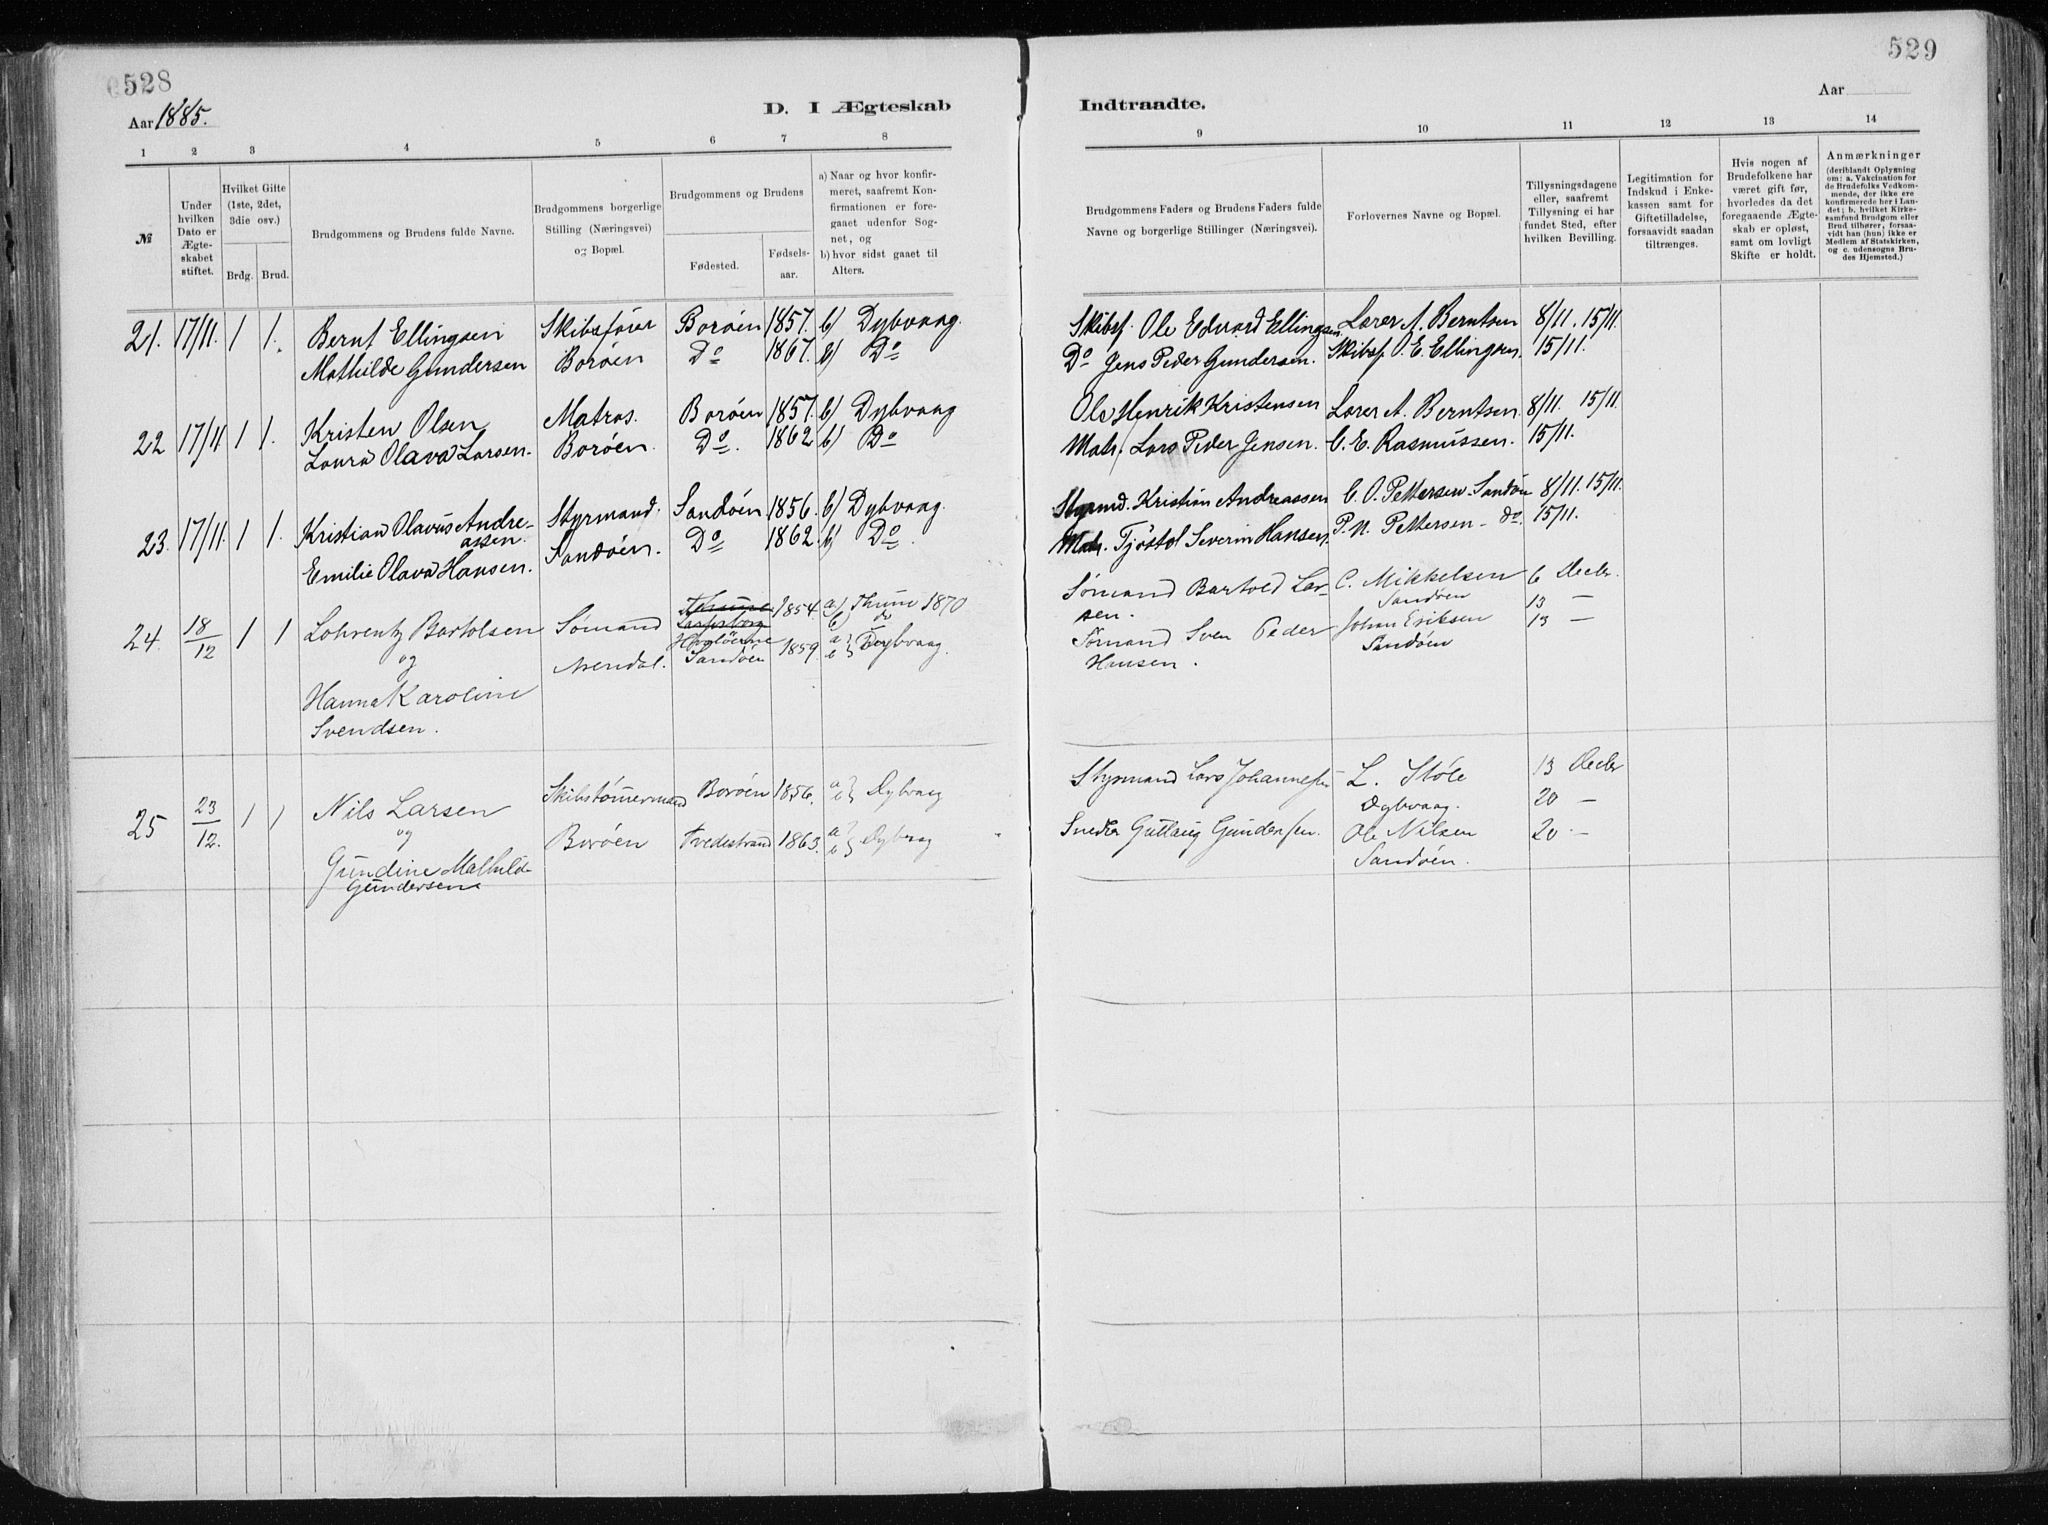 528
Aar 1885.
D. I Ægteskab
1 2 3 4 5 6 7 8
№
Under hvilken Dato er Ægteskabet stiftet.
Hvilket Gifte (1ste, 2det, 3die osv.)
Brdg. Brud.
Brudgommens og Brudens fulde Navne.
Brudgommens borgerlige Stilling (Næringsvei) og Bopæl.
Brudgommens og Brudens
Fødested.
Fødselsaar.
a) Naar og hvor konfirmeret, saafremt Konfirmationen er foregaaet udenfor Sognet, og
b) hvor sidst gaaet til Alters.
21. 17/11. 1 1. Bernt Ellingsen Skibsfører Borøen 1857. b) Dybvaag.
Mathilde Gundersen Borøen Do 1867. b) Do
22 17/11 1 1. Kristen Olsen Matros. Borøen 1857. b) Dybvaag
Laura Olava Larsen. Borøen. Do. 1862 b) Do
23. 17/11. 1 1. Kristian Olavus Andre- Styrmand. Sandøen 1856. b) Dybvaag.
assen.
Emilie Olava Hansen. Sandøen. Do 1862. b) Do.
24. 18/12 1 1 Lohrentz Bartolsen Sømand 1854 a) Thune 1870
b) do
og Arendal. Sandøen 1859 a} b} Dybvaag.
Hanna Karoline
Svendsen.
25 23/12. 1 1 Nils Larsen Skibstømermand Borøen 1856. a} b} Dybvaag
og Borøen Tvedestrand 1863. a} b} Dybvaag
Gundine Mathilde
Gundersen
529
Aar
Indtraadte.
9 10 11 12 13 14
Brudgommens Faders og Brudens Faders fulde Navne og borgerlige Stillinger (Næringsvei).
Forlovernes Navne og Bopæl.
Tillysningsdagene eller, saafremt Tillysning ei har fundet Sted, efter hvilken Bevilling.
Legitimation for Indskud i Enkekassen samt for Giftetilladelse, forsaavidt saadan tiltrænges.
Hvis nogen af Brudefolkene har været gift før, hvorledes da det foregaaende Ægteskab er opløst, samt om lovligt Skifte er holdt.
Anmærkninger
(deriblandt Oplysning om: a. Vakcination for de Brudefolks Vedkommende, der ikke ere konfirmerede her i Landet; b. hvilket Kirkesamfund Brudgom eller Brud tilhører, forsaavidt han (hun) ikke er Medlem af Statskirken, og c. udensogns Brudes Hjemsted.)
Skibsf. Ole Edvard Ellingsen. Lærer A. Berntsen 8/11. 15/11.
Do Jens Peder Gundersen. Skibsf. O. E. Ellingsen. 15/11.
Ole Henrik Kristensen Lærer A. Berntsen. 8/11. 15/11.
Matr. Lars Peder Jensen. C. E. Rasmussen. 15/11.
Styrmd. Kristian Andreassen C. O. Pettersen. Sandøen 8/11. 15/11.
Matr. Tjøstol Severin Hansen. P. N. Pettersen - do. 15/11.
Sømand Bartold Lar- C. Mikkelsen 6 Decbr.
sen. Sandøen 13 —
Sømand Sven Peder Johan Eriksen 13 —
Hansen. Sandøen
Styrmand Lars Johannessen L. Støle 13 Decbr
Dybvaag. 20 —
Snedker Guttorm Gundersen. Ole Nilsen 20 —
Sandøen.